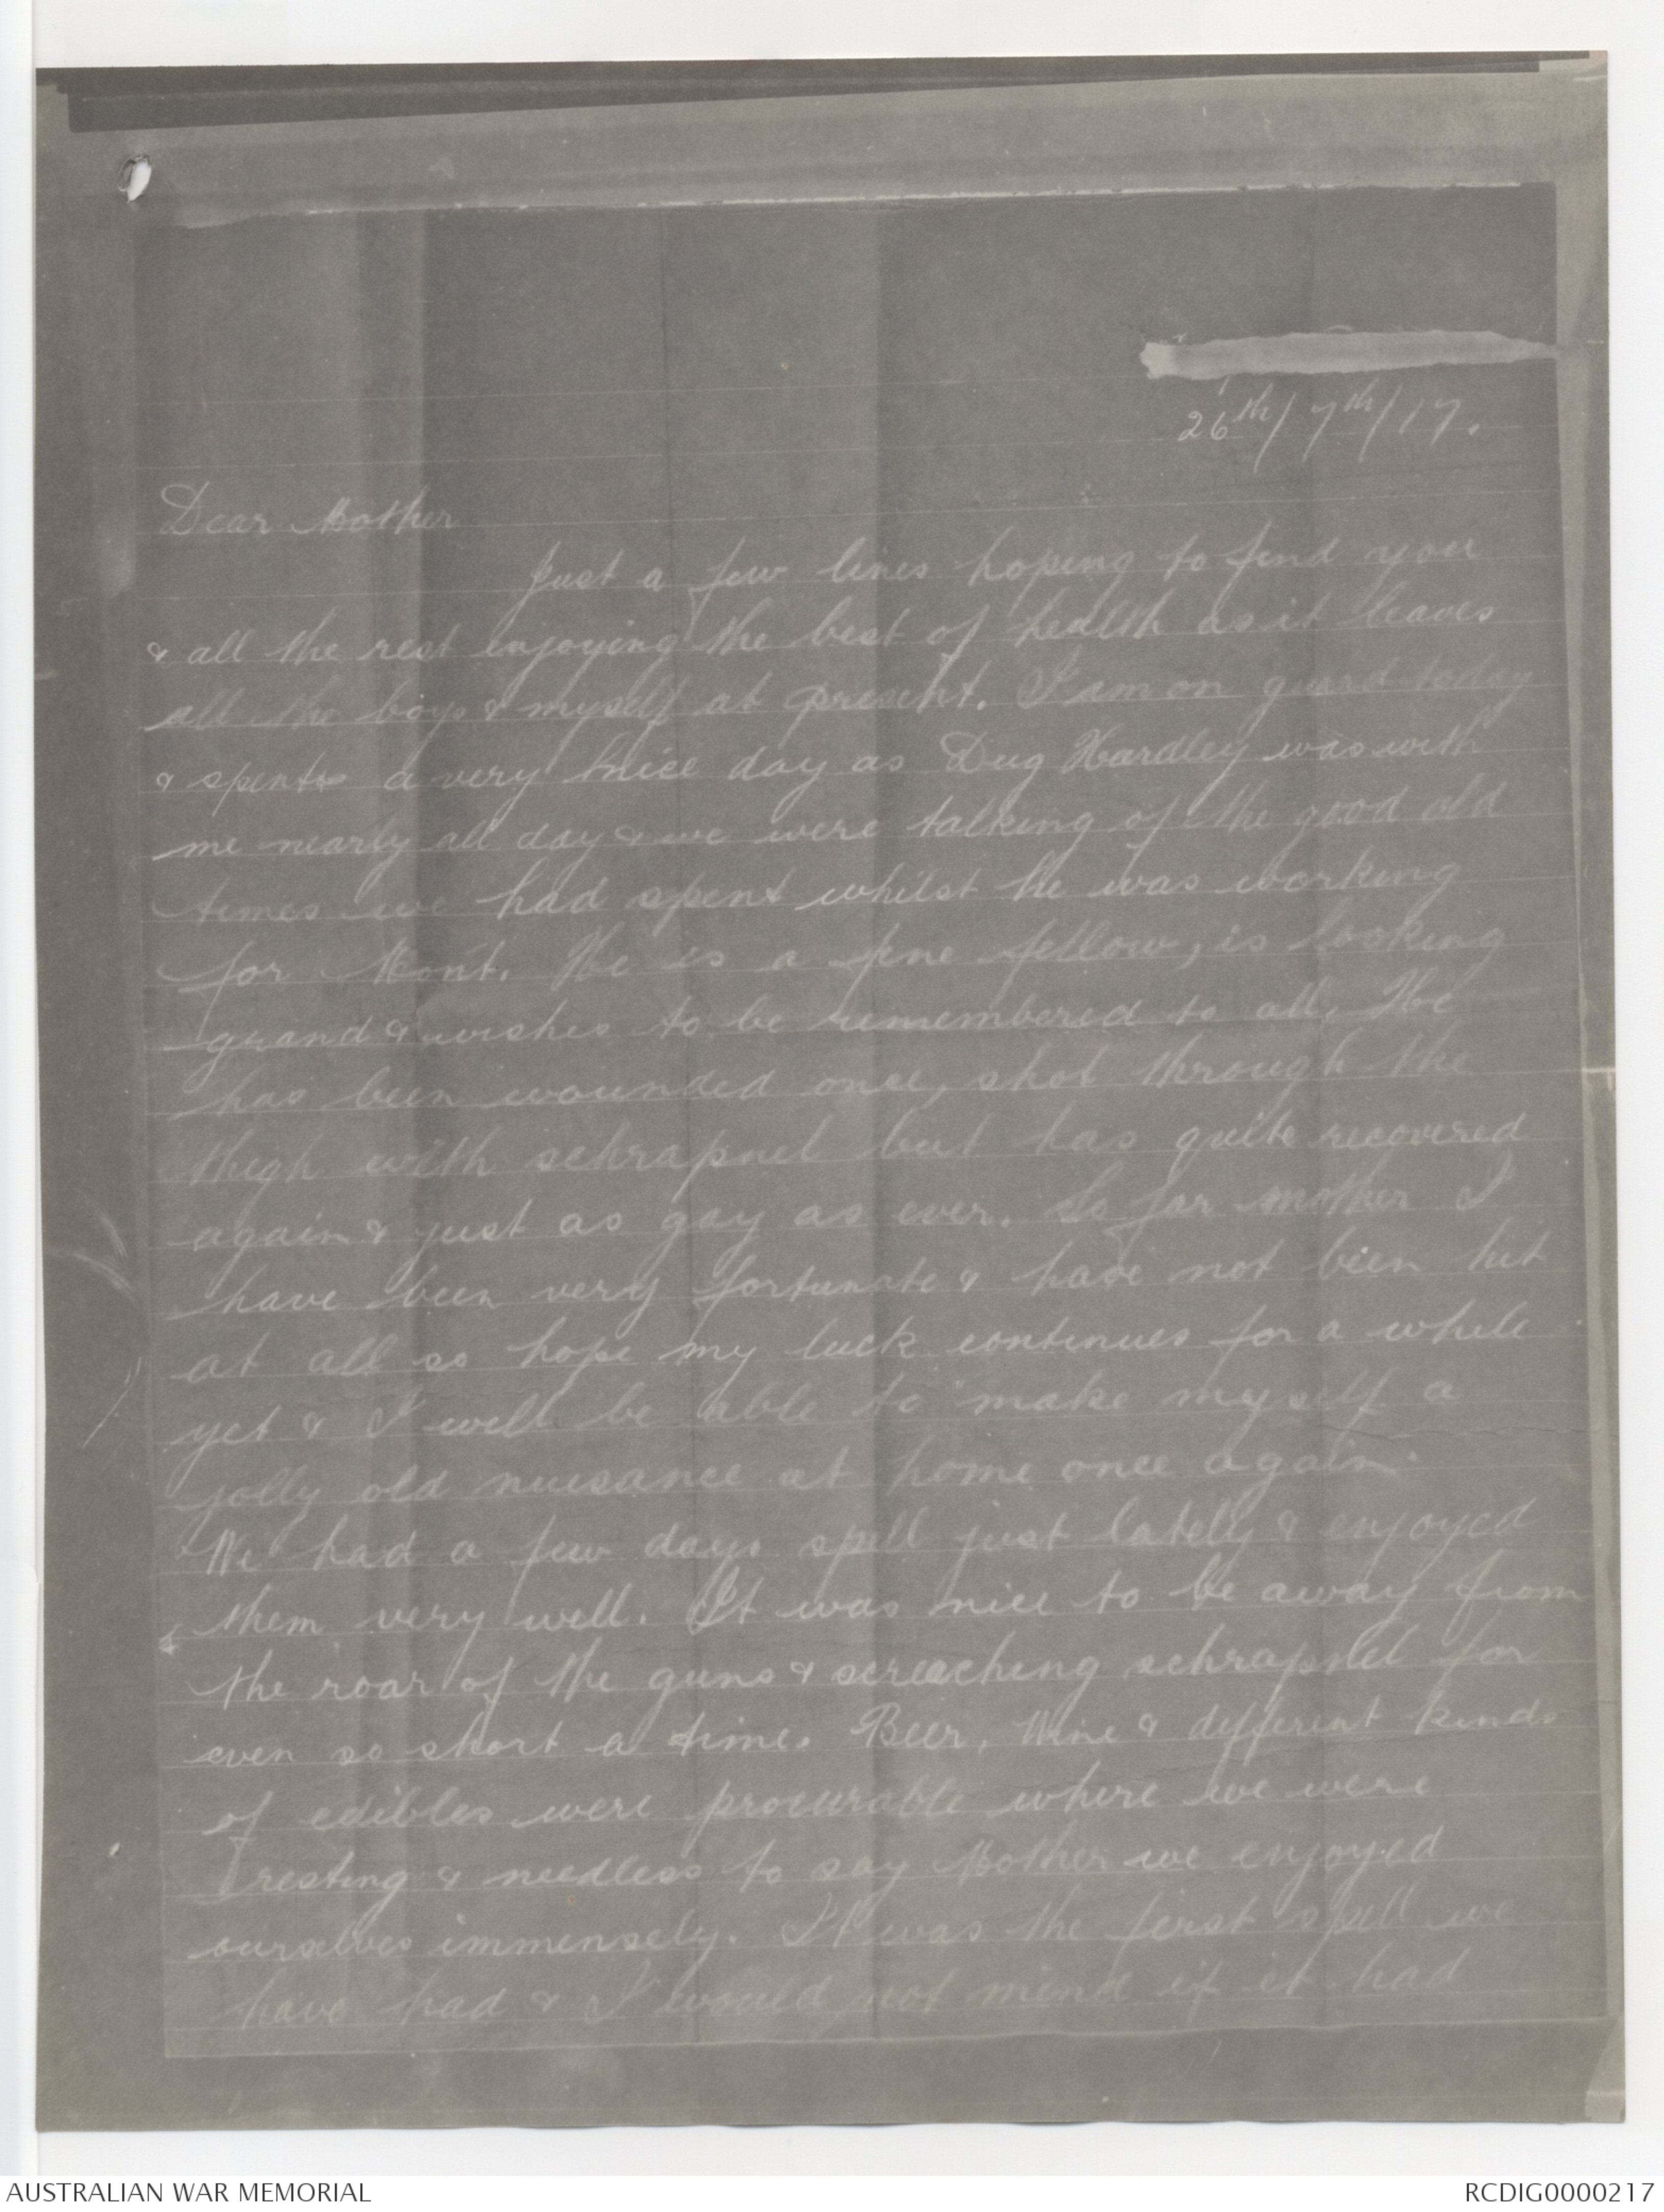 26th/7th/17.
Dear Mother
Just a few lines hoping to find you
& all the rest enjoying the best of health as it leaves
all the boys & myself at present. I am on guard today
& spent a very nice day as Dug Hardley was with
me nearly all day & we were talking of the good old
times we had spent whilst he was working
for Mont. He is a fine fellow, is looking
grand & wishes to be remembered to all. He
has been wounded once, shot through the
thigh with schrapnel but has quite recovered
again & just as gay as ever. So far mother I
have been very fortunate & have not been hit
at all so hope my luck continues for a while
yet & I will be able to make myself a
jolly old nuisance at home once again.
We had a few days spell just lately & enjoyed
them very well. It was nice to be away from
the roar of the guns & screaching schrapnel for
even so short a time. Beer, Wine & different kinds
of edibles were procurable where we were
resting & needless to say Mother we enjoyed
ourselves immensely. It was the first spell we
have had & I would not mind if it had
AUSTRALIAN WAR MEMORIAL
RCDIG0000217